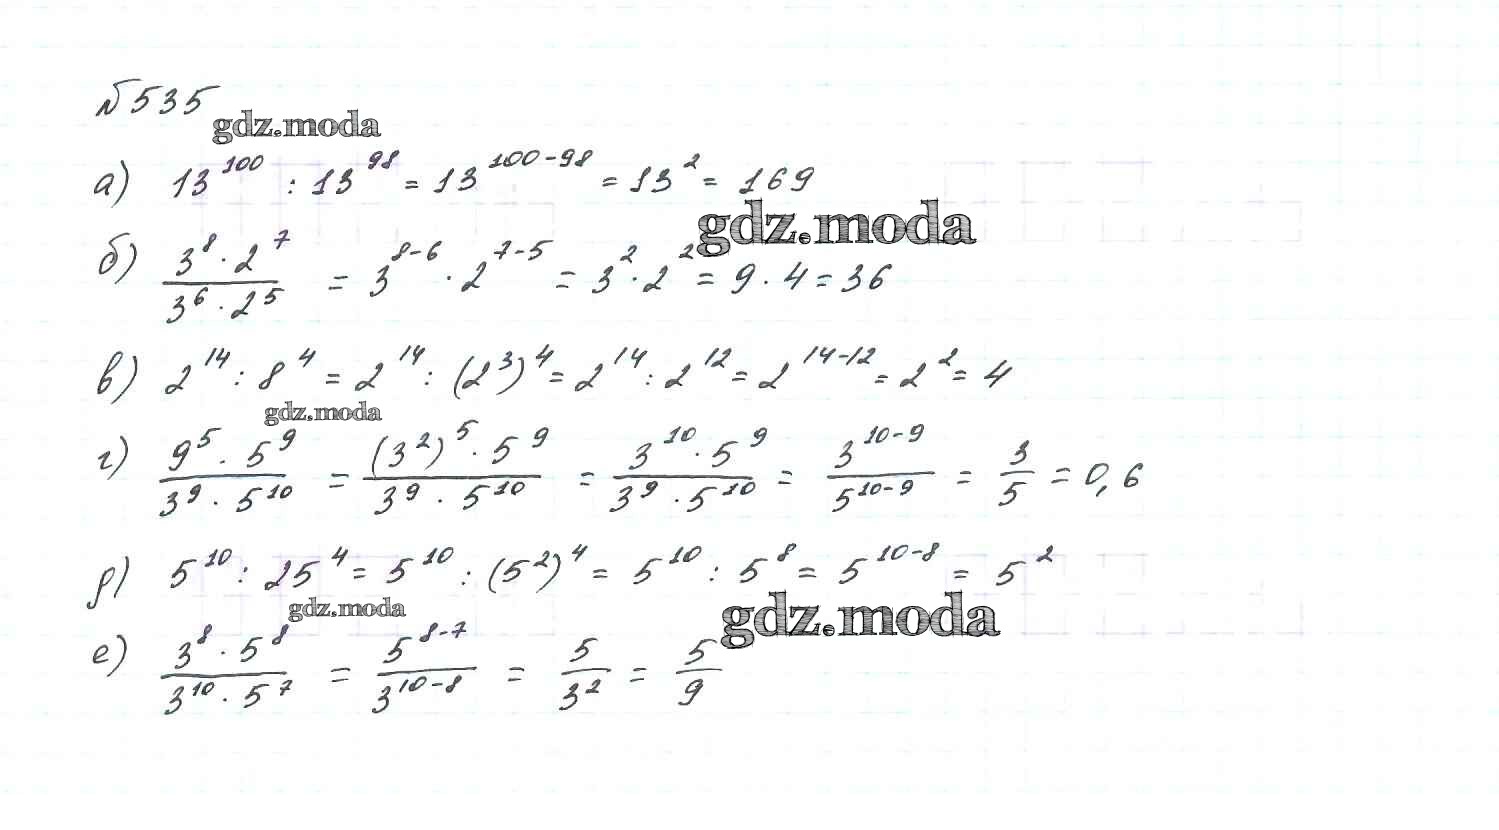 №535
gdz.moda
а) 13^100 : 13^98 = 13^(100-98) = 13^2 = 169
gdz.moda
б) (3^8 · 2^7)/(3^6 · 2^5) = 3^(8-6) · 2^(7-5) = 3^2 · 2^2 = 9 · 4 = 36
в) 2^14 : 8^4 = 2^14 : (2^3)^4 = 2^14 : 2^12 = 2^(14-12) = 2^2 = 4
gdz.moda
г) (9^5 · 5^9)/(3^9 · 5^10) = ((3^2)^5 · 5^9)/(3^9 · 5^10) = (3^10 · 5^9)/(3^9 · 5^10) = 3^(10-9)/5^(10-9) = 3/5 = 0,6
д) 5^10 : 25^4 = 5^10 : (5^2)^4 = 5^10 : 5^8 = 5^(10-8) = 5^2
gdz.moda
gdz.moda
е) (3^8 · 5^8)/(3^10 · 5^7) = 5^(8-7)/3^(10-8) = 5/3^2 = 5/9